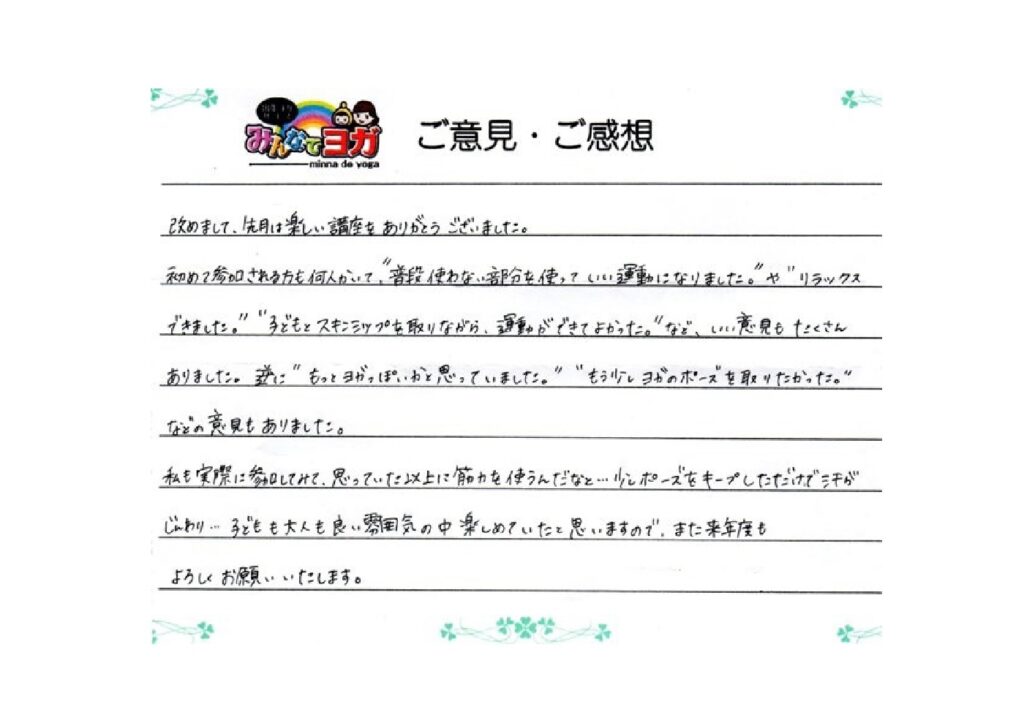 みんなでヨガ
minna de yoga
ご意見・ご感想
改めまして、先月は楽しい講座をありがとうございました。
初めて参加される方も何人かいて、"普段使わない部分を使っていい運動になりました。"や"リラックス
できました。""子どもとスキンシップを取りながら、運動ができてよかった。"など、いい意見もたくさん
ありました。逆に"もっとヨガっぽいかと思っていました。""もう少しヨガのポーズを取りたかった。"
などの意見もありました。
私も実際に参加してみて、思っていた以上に筋力を使うんだなと…少しポーズをキープしただけで汗が
じんわり…子どもも大人も良い雰囲気の中楽しめていたと思いますので、また来年度も
よろしくお願いいたします。